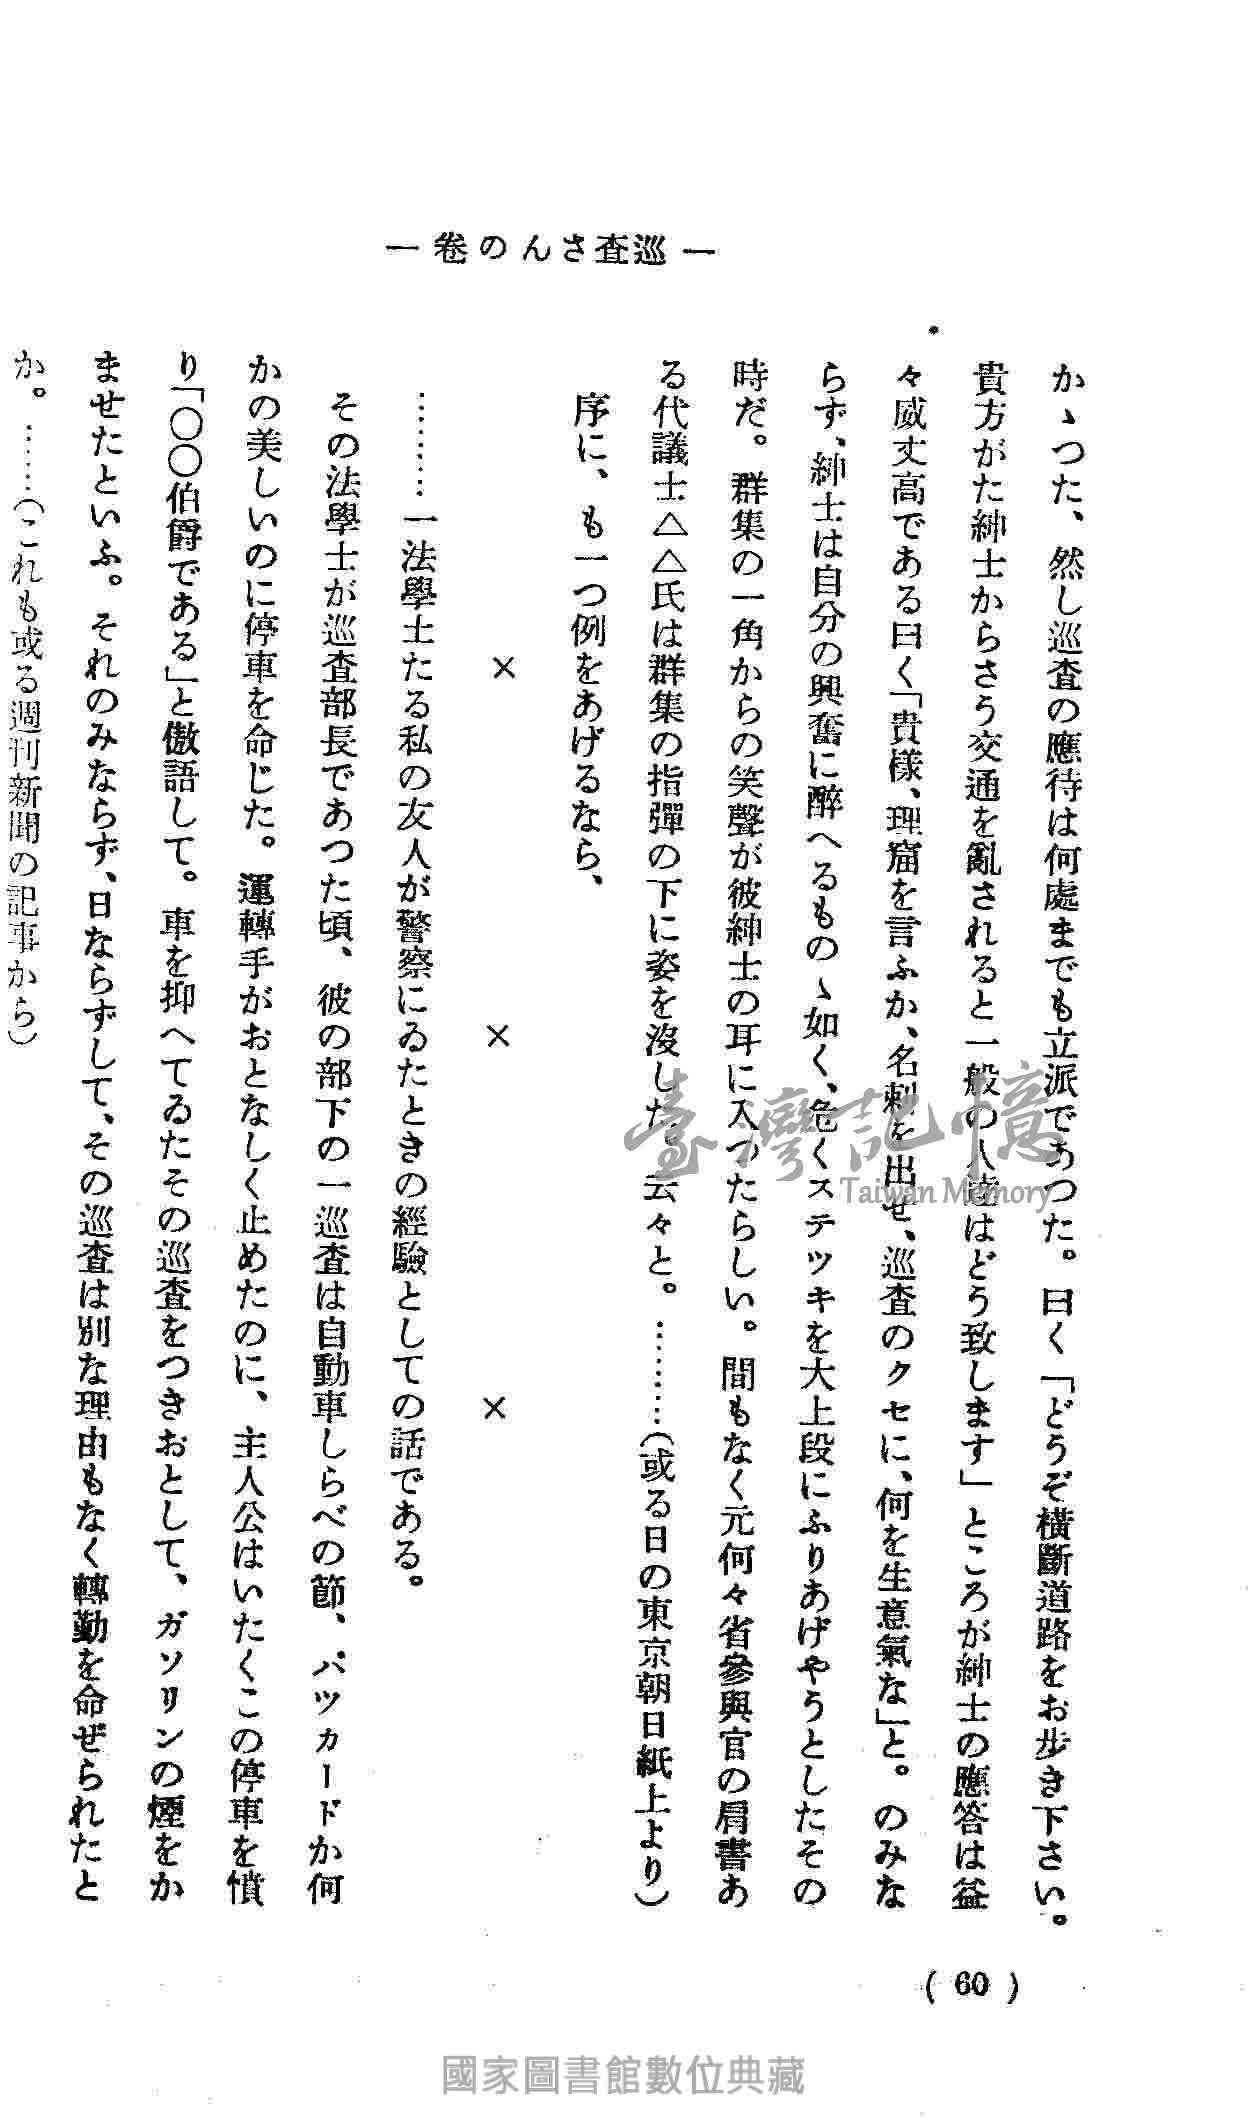 — 巡査さんの卷 —
かゝつた、然し巡査の應待は何處までも立派であつた。曰く「どうぞ橫斷道路をお步き下さい。
貴方がた紳士からさう交通を亂されると一般の人達はどう致します」ところが紳士の應答は益
々威丈高である曰く「貴樣、理窟を言ふか、名刺を出せ、巡査のクセに、何を生意氣な」と。のみな
らず、紳士は自分の興奮に醉へるものゝ如く、危くステツキを大上段にふりあげやうとしたその
時だ。群集の一角からの笑聲が彼紳士の耳に入つたらしい。間もなく元何々省參與官の肩書あ
る代議士△△氏は群集の指彈の下に姿を沒した。云々と。………(或る日の東京朝日紙上より)
序に、も一つ例をあげるなら、
× × ×
………一法學士たる私の友人が警察にゐたときの經驗としての話である。
その法學士が巡査部長であつた頃、彼の部下の一巡査は自動車しらべの節、パツカードか何
かの美しいのに停車を命じた。運轉手がおとなしく止めたのに、主人公はいたくこの停車を憤
り「〇〇伯爵である」と傲語して。車を抑へてゐたその巡査をつきおとして、ガソリンの煙をか
ませたといふ。それのみならず、日ならずして、その巡査は別な理由もなく轉勤を命ぜられたと
か。……(これも或る週刊新聞の記事から)
( 60 )
臺灣記憶
Taiwan Memory
國家圖書館數位典藏